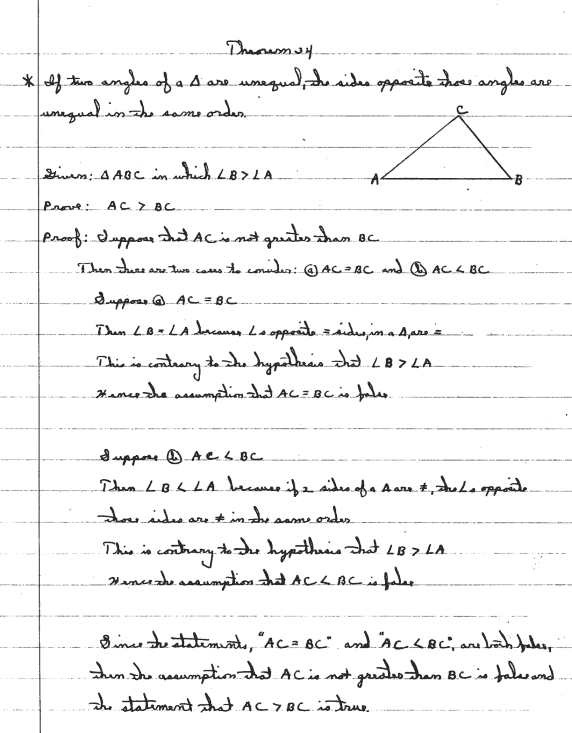 Theorem 34
* If two angles of a Δ are unequal, the sides opposite those angles are
unequal in the same order.
C
Given: Δ ABC in which ∠B > ∠A
A
B
Prove: AC > BC
Proof: Suppose that AC is not greater than BC
Then there are two cases to consider: ⓐ AC = BC and ⓑ AC < BC
Suppose ⓐ AC = BC
Then ∠B = ∠A because ∠s opposite = sides, in a Δ, are =
This is contrary to the hypothesis that ∠B > ∠A
Hence the assumption that AC = BC is false
Suppose ⓑ AC < BC
Then ∠B < ∠A because if 2 sides of a Δ are ≠, the ∠s opposite
those sides are ≠ in the same order
This is contrary to the hypothesis that ∠B > ∠A
Hence the assumption that AC < BC is false
Since the statements, "AC = BC" and "AC < BC", are both false,
then the assumption that AC is not greater than BC is false and
the statement that AC > BC is true.